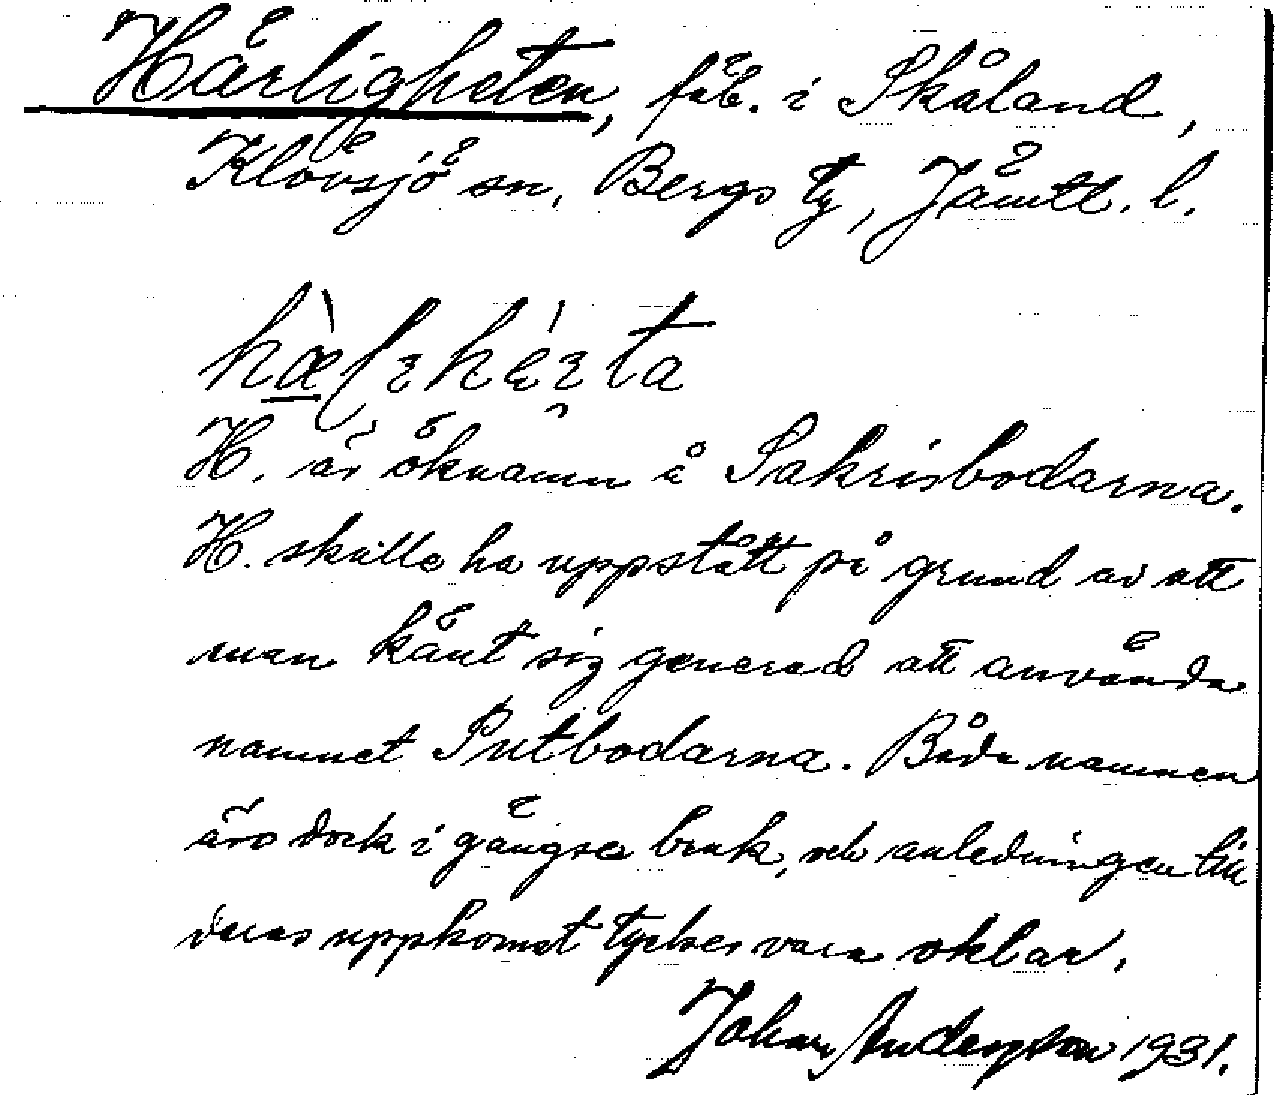 Härligheten, fäb. i Skålan​d,
Klövsjö sn, Bergs tg, Jämtl. l.
H. är öknamn å Sakrisbodarna.
H. skulle ha uppstått på grund av att
man känt sig generad att använda
namnet Putbodarna. Båda namnen
äro dock i gängse bruk, och anledningen till
deras uppkomst tyckes vara oklar.
Johan Anderson 1931.